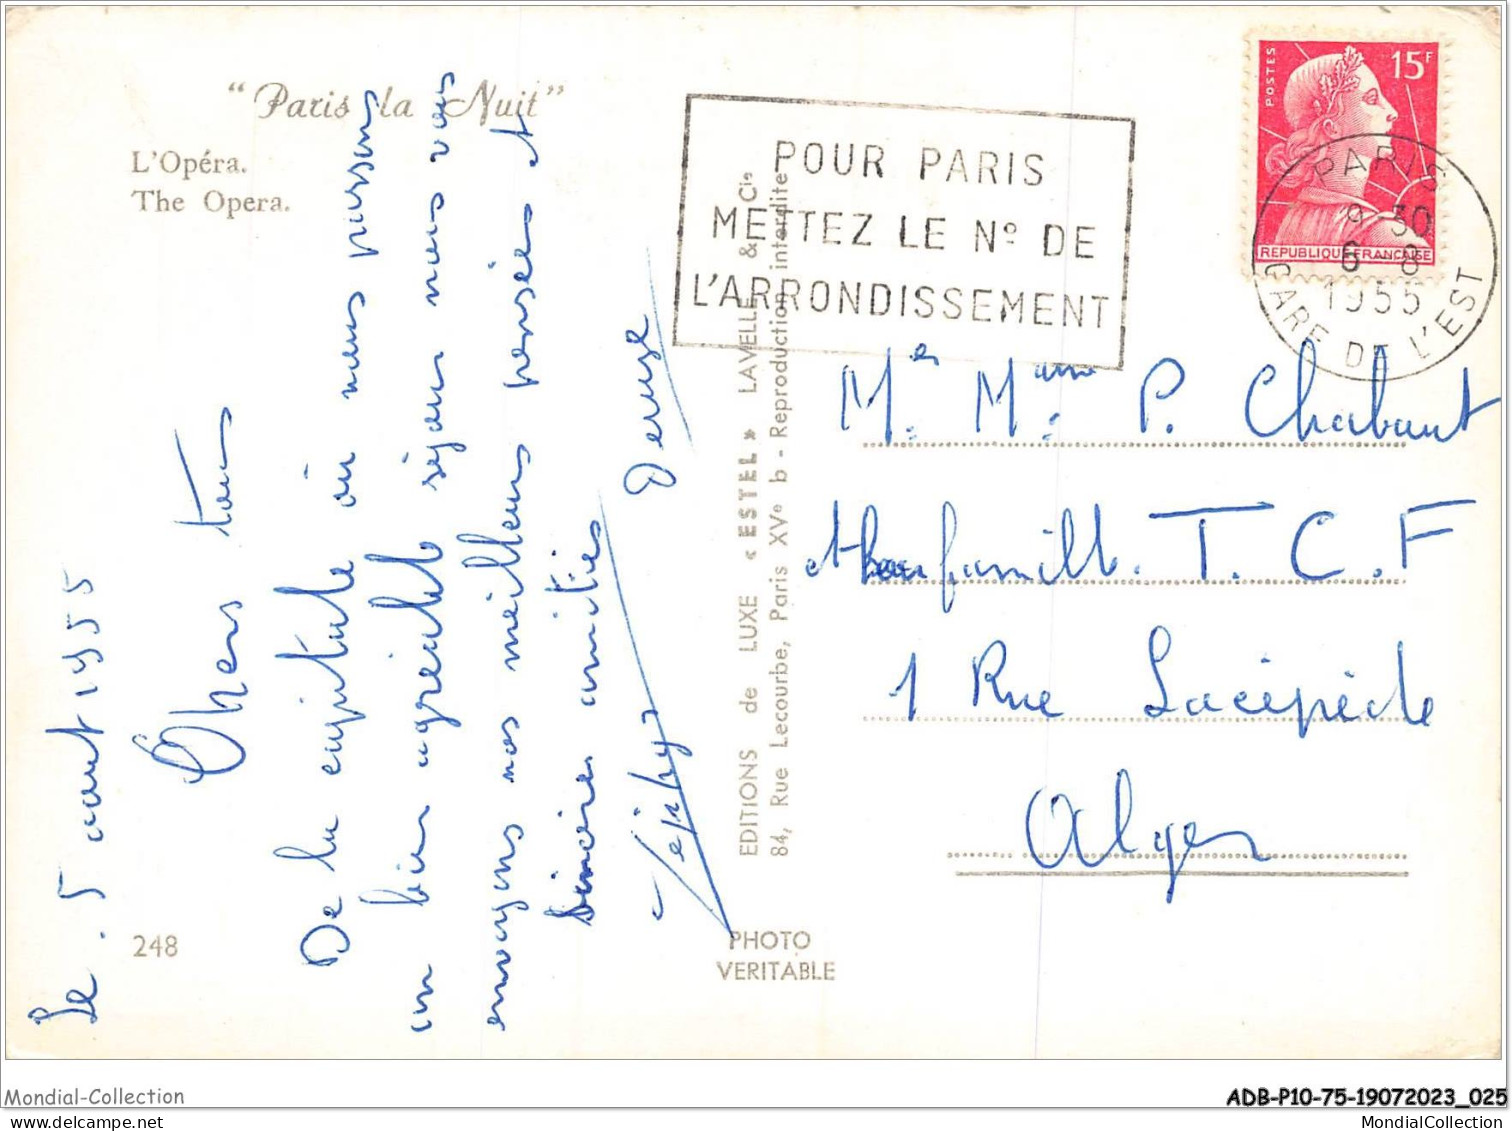 "Paris la Nuit"
L'Opéra.
The Opera.
POUR PARIS
METTEZ LE Nº DE
L'ARRONDISSEMENT
POSTES
15F
REPUBLIQUE FRANCAISE
PARIS
9 30
6 - 8
1955
GARE DE L'EST
Le 5 aout 1955
Chers tous
De la capitale où nous passons
un bien agréable séjour nous vous
envoyons nos meilleurs pensées et
Sincères amitiés
Denyse
EDITIONS de LUXE « ESTEL » LAVELLE & Cie
84, Rue Lecourbe, Paris XVe b - Reproduction interdite
Mr es Mme P. Chabaut
et famille. T. C. F
1 Rue Lacépède
Alger
248
PHOTO
VERITABLE
Mondial-Collection
ADB-P10-75-19072023_025
www.delcampe.net
MondialCollection